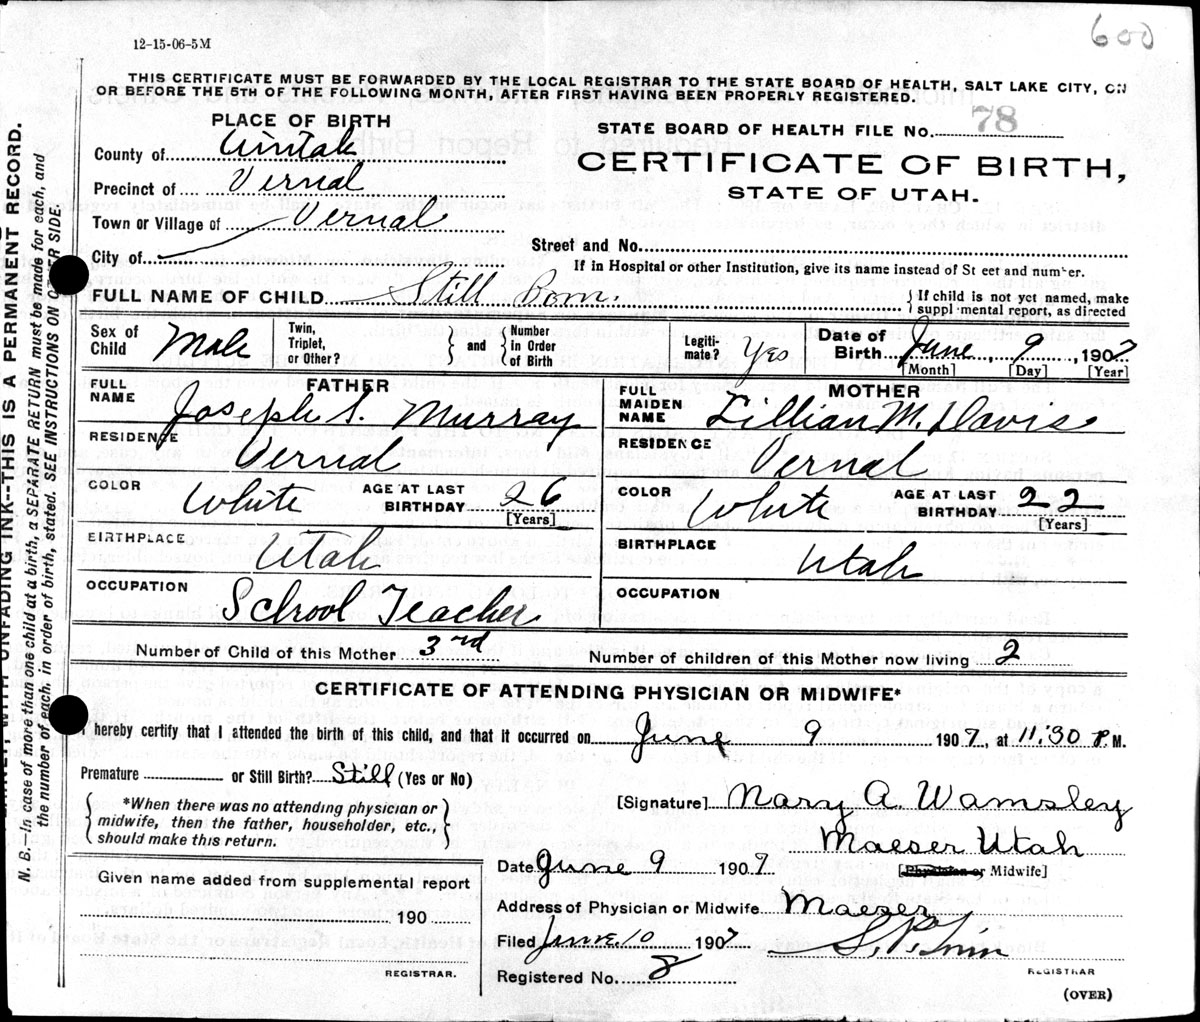 600
12-15-06-5M
THIS CERTIFICATE MUST BE FORWARDED BY THE LOCAL REGISTRAR TO THE STATE BOARD OF HEALTH, SALT LAKE CITY, ON
OR BEFORE THE 5TH OF THE FOLLOWING MONTH, AFTER FIRST HAVING BEEN PROPERLY REGISTERED.
PLACE OF BIRTH
County of Uintah
Precinct of Vernal
Town or Village of Vernal
City of
STATE BOARD OF HEALTH FILE No. 78
CERTIFICATE OF BIRTH,
STATE OF UTAH.
Street and No.
If in Hospital or other Institution, give its name instead of St eet and number.
FULL NAME OF CHILD Still Born. } If child is not yet named, make
suppl mental report, as directed
Sex of Child Male
Twin, Triplet, or Other? } and { Number in Order of Birth
Legiti- mate? Yes
Date of Birth June 9, 1907
[Month] [Day] [Year]
FATHER
FULL NAME Joseph S. Murray
RESIDENCE Vernal
COLOR White AGE AT LAST BIRTHDAY 26
[Years]
BIRTHPLACE Utah
OCCUPATION School Teacher
MOTHER
FULL MAIDEN NAME Lillian M. Davis
RESIDENCE Vernal
COLOR White AGE AT LAST BIRTHDAY 22
[Years]
BIRTHPLACE Utah
OCCUPATION
Number of Child of this Mother 3rd Number of children of this Mother now living 2
CERTIFICATE OF ATTENDING PHYSICIAN OR MIDWIFE*
I hereby certify that I attended the birth of this child, and that it occurred on June 9 1907, at 11:30 P.M.
Premature or Still Birth? Still (Yes or No)
*When there was no attending physician or
midwife, then the father, householder, etc.,
should make this return.
Given name added from supplemental report
190
REGISTRAR.
[Signature] Mary A. Wamsley
Maeser Utah
Date June 9 1907 [Physician or Midwife]
Address of Physician or Midwife Maeser
Filed June 10 1907
REGISTRAR
Registered No. 8
(OVER)
N. B.—In case of more than one child at a birth, a SEPARATE RETURN must be made for each, and
the number of each, in order of birth, stated. SEE INSTRUCTIONS ON OTHER SIDE.
WITH UNFADING INK--THIS IS A PERMANENT RECORD.